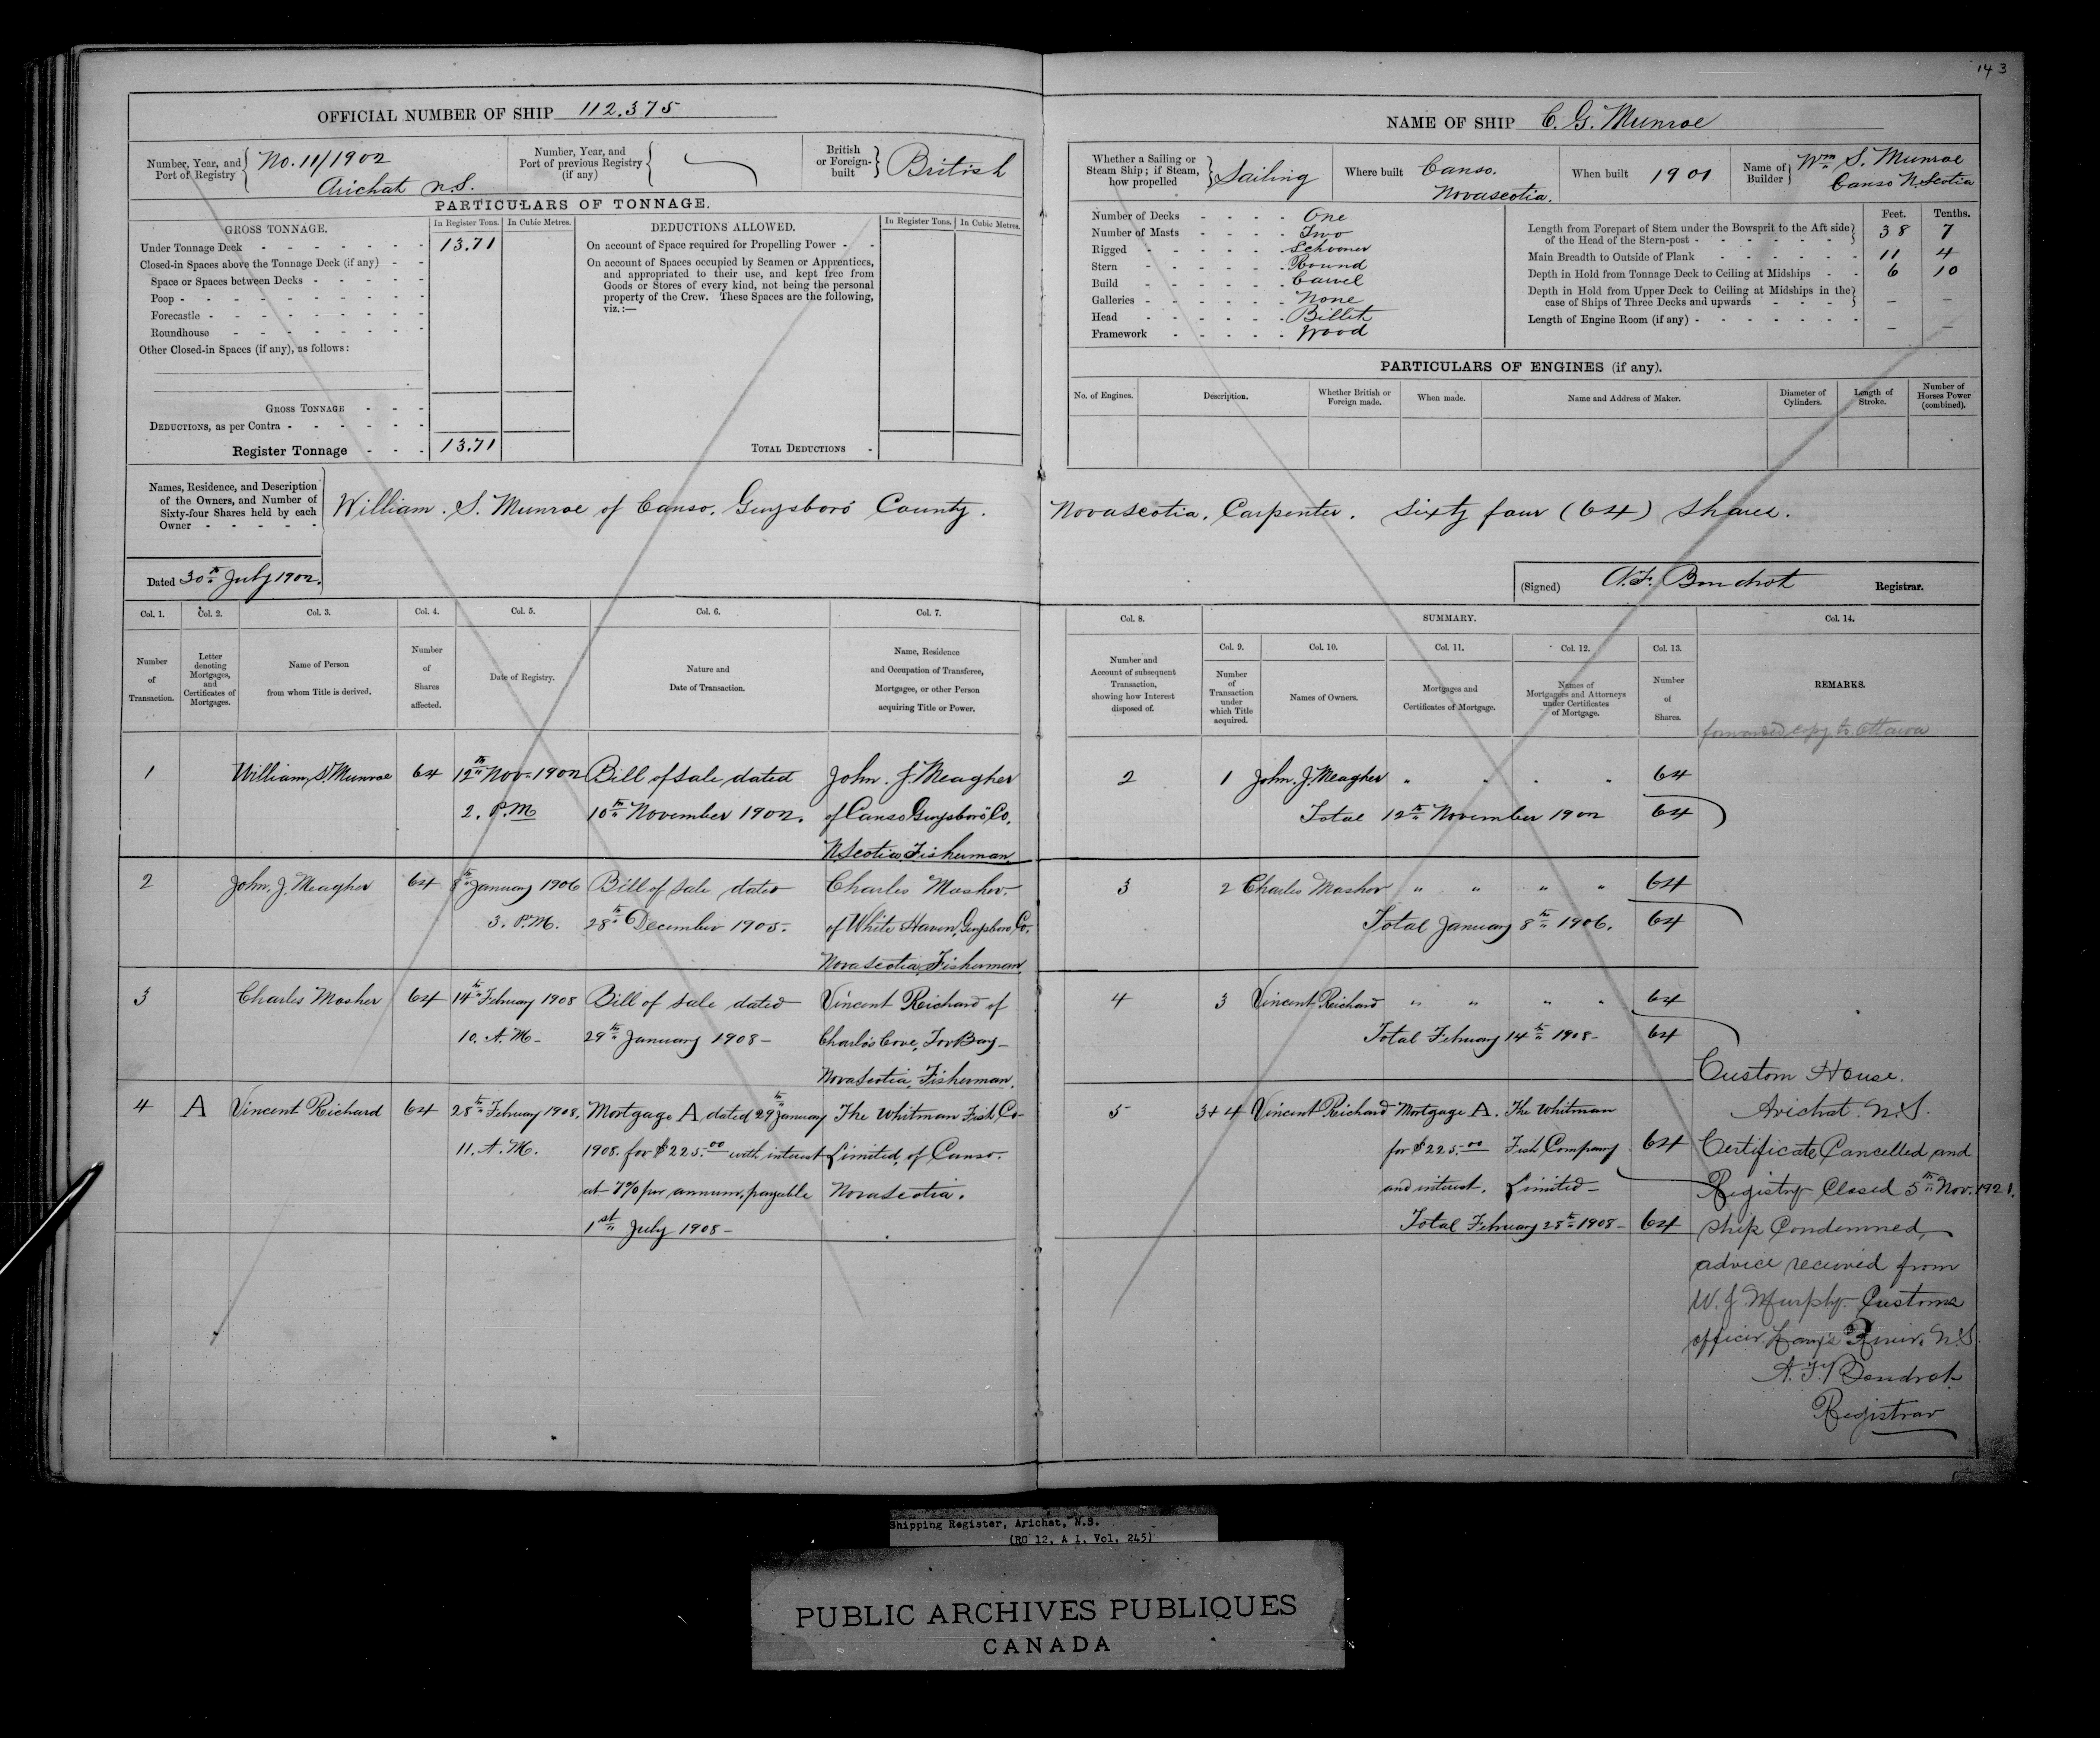 143
OFFICIAL NUMBER OF SHIP 112.375
Number, Year, and Port of Registry No. 11/1902
Arichat N.S.
Number, Year, and Port of previous Registry (if any)
British or Foreign-built British
PARTICULARS OF TONNAGE.
GROSS TONNAGE.
In Register Tons.
In Cubic Metres.
DEDUCTIONS ALLOWED.
In Register Tons.
In Cubic Metres.
Under Tonnage Deck 13.71
Closed-in Spaces above the Tonnage Deck (if any)
Space or Spaces between Decks
Poop
Forecastle
Roundhouse
Other Closed-in Spaces (if any), as follows:
GROSS TONNAGE
DEDUCTIONS, as per Contra
Register Tonnage 13.71
On account of Space required for Propelling Power
On account of Spaces occupied by Seamen or Apprentices,
and appropriated to their use, and kept free from
Goods or Stores of every kind, not being the personal
property of the Crew. These Spaces are the following,
viz.:—
TOTAL DEDUCTIONS
NAME OF SHIP C. G. Munroe
Whether a Sailing or Steam Ship; if Steam, how propelled Sailing
Where built Canso.
Novascotia.
When built 1901
Name of Builder Wm S. Munroe
Canso N. Scotia
Number of Decks One
Number of Masts Two
Rigged Schooner
Stern Round
Build Carvel
Galleries None
Head Billet
Framework Wood
Feet. Tenths.
Length from Forepart of Stem under the Bowsprit to the Aft side
of the Head of the Stern-post 38 7
Main Breadth to Outside of Plank 11 4
Depth in Hold from Tonnage Deck to Ceiling at Midships 6 10
Depth in Hold from Upper Deck to Ceiling at Midships in the
case of Ships of Three Decks and upwards — —
Length of Engine Room (if any) — —
PARTICULARS OF ENGINES (if any).
No. of Engines.
Description.
Whether British or Foreign made.
When made.
Name and Address of Maker.
Diameter of Cylinders.
Length of Stroke.
Number of Horses Power (combined).
Names, Residence, and Description
of the Owners, and Number of
Sixty-four Shares held by each
Owner
William. S. Munroe of Canso. Guysboro County. Novascotia. Carpenter. Sixty four (64) Shares.
Dated 30th July 1902.
(Signed) A. F. Boudrot Registrar.
Col. 1. Number of Transaction.
Col. 2. Letter denoting Mortgages, and Certificates of Mortgages.
Col. 3. Name of Person from whom Title is derived.
Col. 4. Number of Shares affected.
Col. 5. Date of Registry.
Col. 6. Nature and Date of Transaction.
Col. 7. Name, Residence and Occupation of Transferee, Mortgagee, or other Person acquiring Title or Power.
Col. 8. Number and Account of subsequent Transaction, showing how Interest disposed of.
SUMMARY.
Col. 9. Number of Transaction under which Title acquired.
Col. 10. Names of Owners.
Col. 11. Mortgages and Certificates of Mortgage.
Col. 12. Names of Mortgagees and Attorneys under Certificates of Mortgage.
Col. 13. Number of Shares.
Col. 14. REMARKS.
forwarded copy to Ottawa
1 William. S. Munroe 64 12th Nov. 1902 Bill of Sale dated John. J. Meagher
2. P.M 10th November 1902. of Canso Guysboro Co.
N. Scotia, Fisherman
2 1 John. J. Meagher " " " " 64
Total 12th November 1902 64
2 John. J. Meagher 64 8th January 1906 Bill of Sale dated Charles Mosher
3. P.M. 28th December 1905. of White Haven, Guysboro Co.
Nova Scotia, Fisherman
3 2 Charles Mosher " " " " 64
Total January 8th 1906. 64
3 Charles Mosher 64 14th February 1908 Bill of Sale dated Vincent Richard of
10. A.M. 29th January 1908 – Charlo's Cove, Tor Bay –
Nova Scotia, Fisherman.
4 3 Vincent Richard " " " " 64
Total February 14th 1908 – 64
4 A Vincent Richard 64 28th February 1908. Mortgage A dated 29th January The Whitman Fish Co –
11. A.M. 1908. for $225.00 with interest Limited, of Canso.
at 7% per annum, payable Nova Scotia.
1st July 1908 –
5 3+4 Vincent Richard Mortgage A. The Whitman
for $225.00 Fish Company 64
and interest. Limited –
Total February 28th 1908 – 64
Custom House.
Arichat. N.S.
Certificate Cancelled and
Registry Closed 5th Nov. 1921.
Ship Condemned,
advice received from
W. J. Murphy Customs
officer. Larry's River. N.S.
A. F. Boudrot
Registrar
Shipping Register, Arichat, N.S.
(RG 12, A 1, Vol. 245)
PUBLIC ARCHIVES PUBLIQUES
CANADA